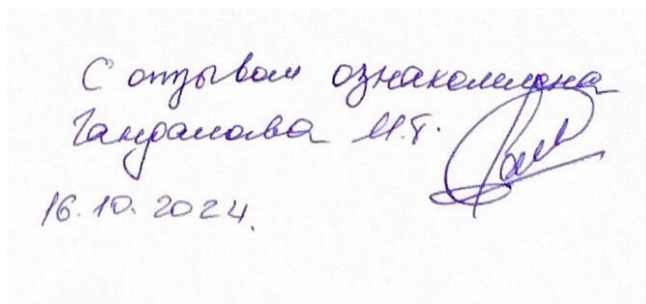 С отзывом ознакомлена
Гандалова М.Т.
16.10.2024.